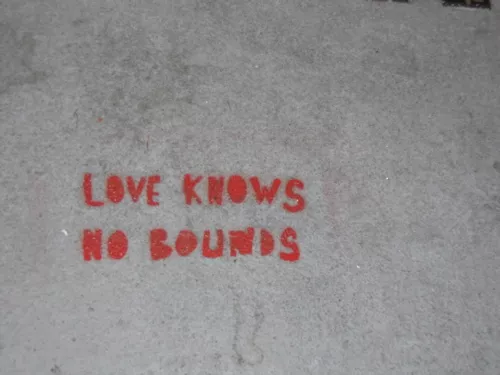 LOVE KNOWS
NO BOUNDS